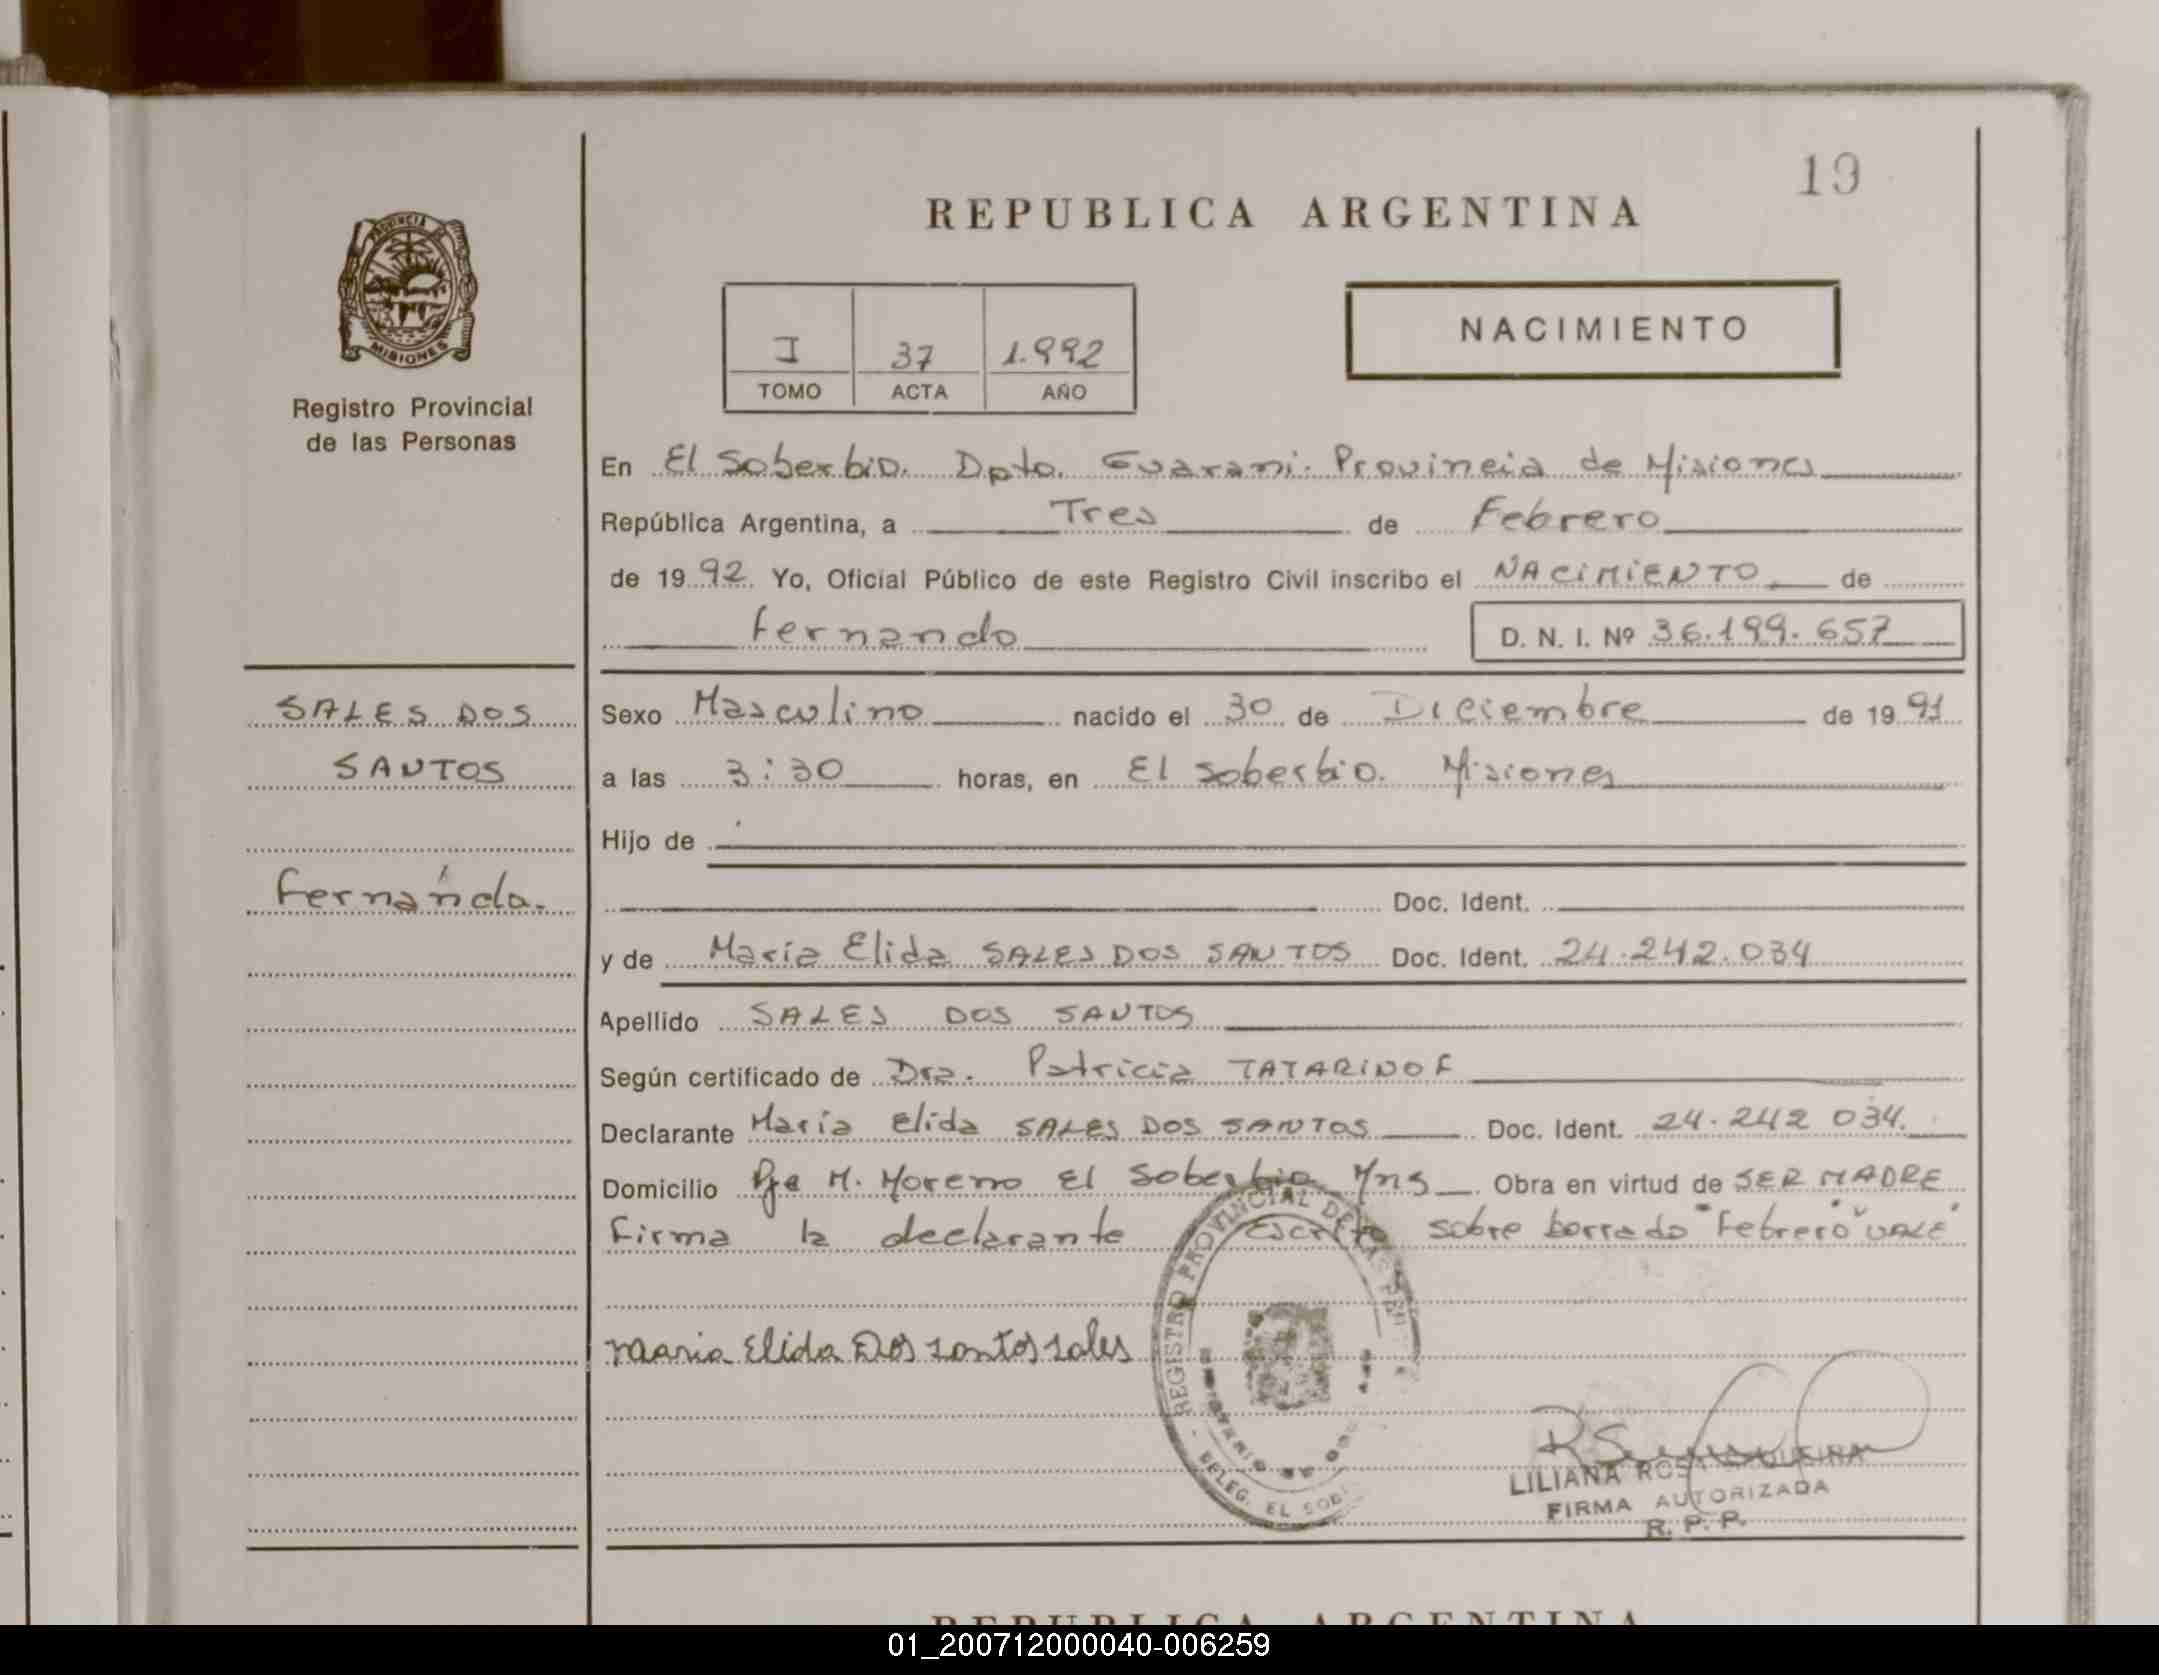 19
REPUBLICA ARGENTINA
PROVINCIA DE
MISIONES
Registro Provincial
de las Personas
I 37 1.992
TOMO ACTA AÑO
NACIMIENTO
En El Soberbio. Dpto. Guarani. Provincia de Misiones
República Argentina, a Tres de Febrero
de 1992 Yo, Oficial Público de este Registro Civil inscribo el NACIMIENTO de
Fernando D. N. I. Nº 36.199.657
SALES DOS
SANTOS
Fernando.
Sexo Masculino nacido el 30 de Diciembre de 1991
a las 3:30 horas, en El Soberbio. Misiones
Hijo de
Doc. Ident.
y de María Elida SALES DOS SANTOS Doc. Ident. 24.242.034
Apellido SALES DOS SANTOS
Según certificado de Dra. Patricia TATARINOF
Declarante María Elida SALES DOS SANTOS Doc. Ident. 24.242 034.
Domicilio Pje M. Moreno El Soberbio Mns Obra en virtud de SER MADRE
Firma la declarante Escrito sobre borrado "Febrero" "VALE"
maria Elida Dos santos sales
REGISTRO PROVINCIAL DE LAS PER
DELEG. EL SOB
LILIANA
FIRMA AUTORIZADA
R. P. P.
REPUBLICA ARGENTINA
01_200712000040-006259